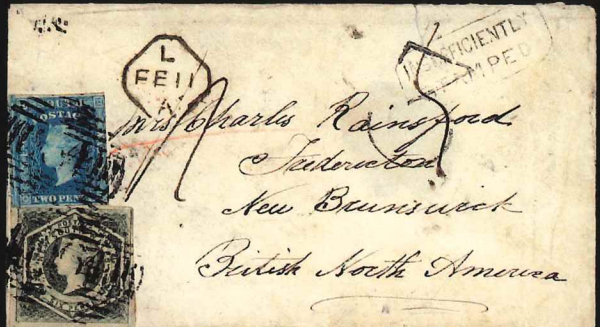 L
FE 11
A
INSUFFICIENTLY
STAMPED
SOUTH
POSTAG
TWO PEN
Mrs Charles Rainsford
Fredericton
New Brunswick
British North America